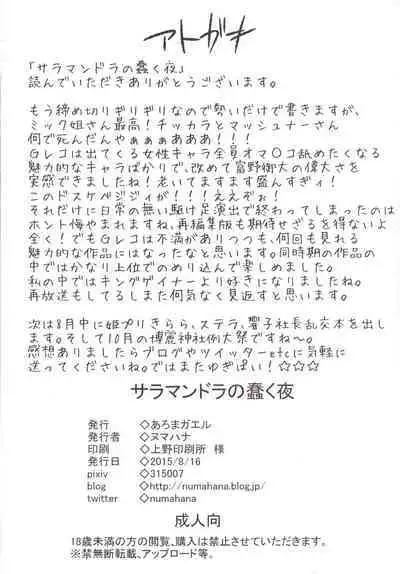 アトガキ
「サラマンドラの蠢く夜」
読んでいただきありがとうございます。
もう締め切りギリギリなので勢いだけで書きますが、
ミック姉さん最高!チッカラとマッシュナーさん
何で死んだんやぁぁぁあああ!!!
Gレコは出てくる女性キャラ全員オマ〇コ舐めたくなる
魅力的なキャラばかりで、改めて富野御大の偉大さを
実感できましたね!老いてますます盛んすぎィ!
このドスケベジジィが!!!!ええぞぉ!
それだけに日常の無い駆け足演出で終わってしまったのは
ホント悔やまれますね、再編集版も期待せざるを得ないよ
全く!でもGレコは不満がありつつも、何回も見れる
魅力的な作品にはなったなと思います。同時期の作品の
中ではかなり上位でのめり込んで楽しめました。
私の中ではキングゲイナーより好きになりましたね。
再放送もしてるしまた何気なく見返すと思います。
次は8月中に姫プリきらら、ステラ、響子社長乱交本を出し
ます。そして10月の博麗神社例大祭ですね〜。
感想ありましたらブログやツイッターetcに気軽に
送ってくださいね。ではまたゆぎぱい!☆☆☆
サラマンドラの蠢く夜
発行 ◇あろまガエル
発行者 ◇ヌマハナ
印刷 ◇上野印刷所 様
発行日 ◇2015/8/16
pixiv ◇315007
blog ◇http://numahana.blog.jp/
twitter ◇numahana
成人向
18歳未満の方の閲覧、購入は禁止させていただきます。
※禁無断転載、アップロード等。